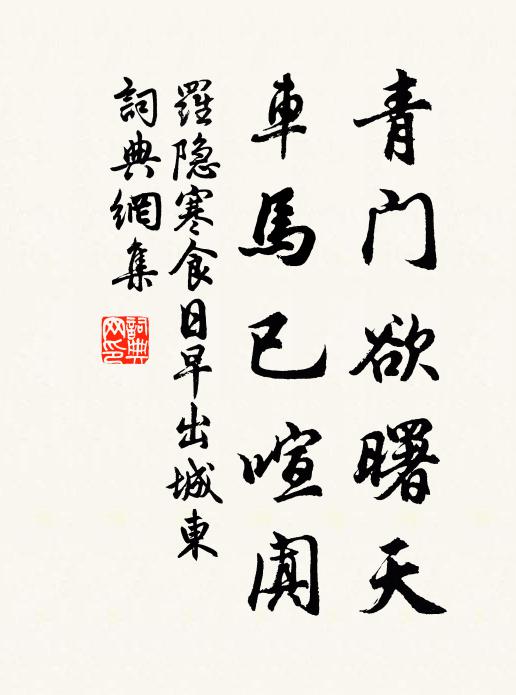 青門欲曙天
車馬已喧闐
羅隐寒食日早出城東
詞典網集
詞典网印